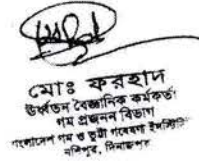 মোঃ ফরহাদ
ঊর্ধ্বতন বৈজ্ঞানিক কর্মকর্তা
গম প্রজনন বিভাগ
বাংলাদেশ গম ও ভুট্টা গবেষণা ইনস্টিটিউট
নশিপুর, দিনাজপুর